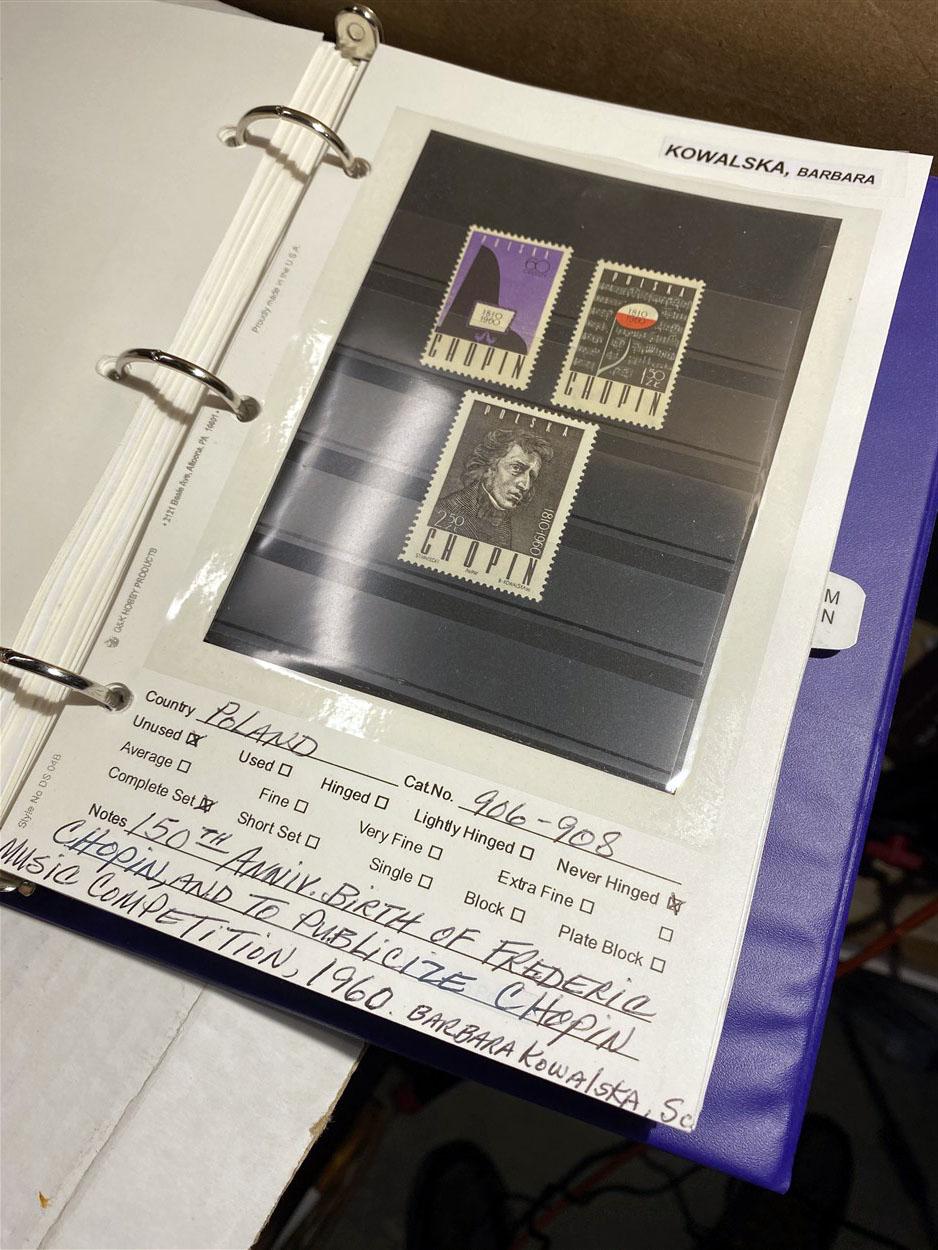 KOWALSKA, BARBARA
POLSKA
60
1810
1960
CHOPIN
POLSKA
1810
1960
1 50
ZŁ
CHOPIN
POLSKA
2 50
ZŁ
1810·1960
CHOPIN
B. KOWALSKA
Proudly made in the U.S.A.
• 2121 Beale Ave, Altoona, PA 16601 •
G&K HOBBY PRODUCTS
Style No DS 04B
M
N
Country POLAND Cat.No. 906-908
Unused Used Hinged Lightly Hinged Never Hinged
Average Fine Very Fine Extra Fine
Complete Set Short Set Single Block Plate Block
Notes 150TH ANNIV. BIRTH OF FREDERIC
CHOPIN, AND TO PUBLICIZE CHOPIN
MUSIC COMPETITION, 1960. BARBARA KOWALSKA, Sc